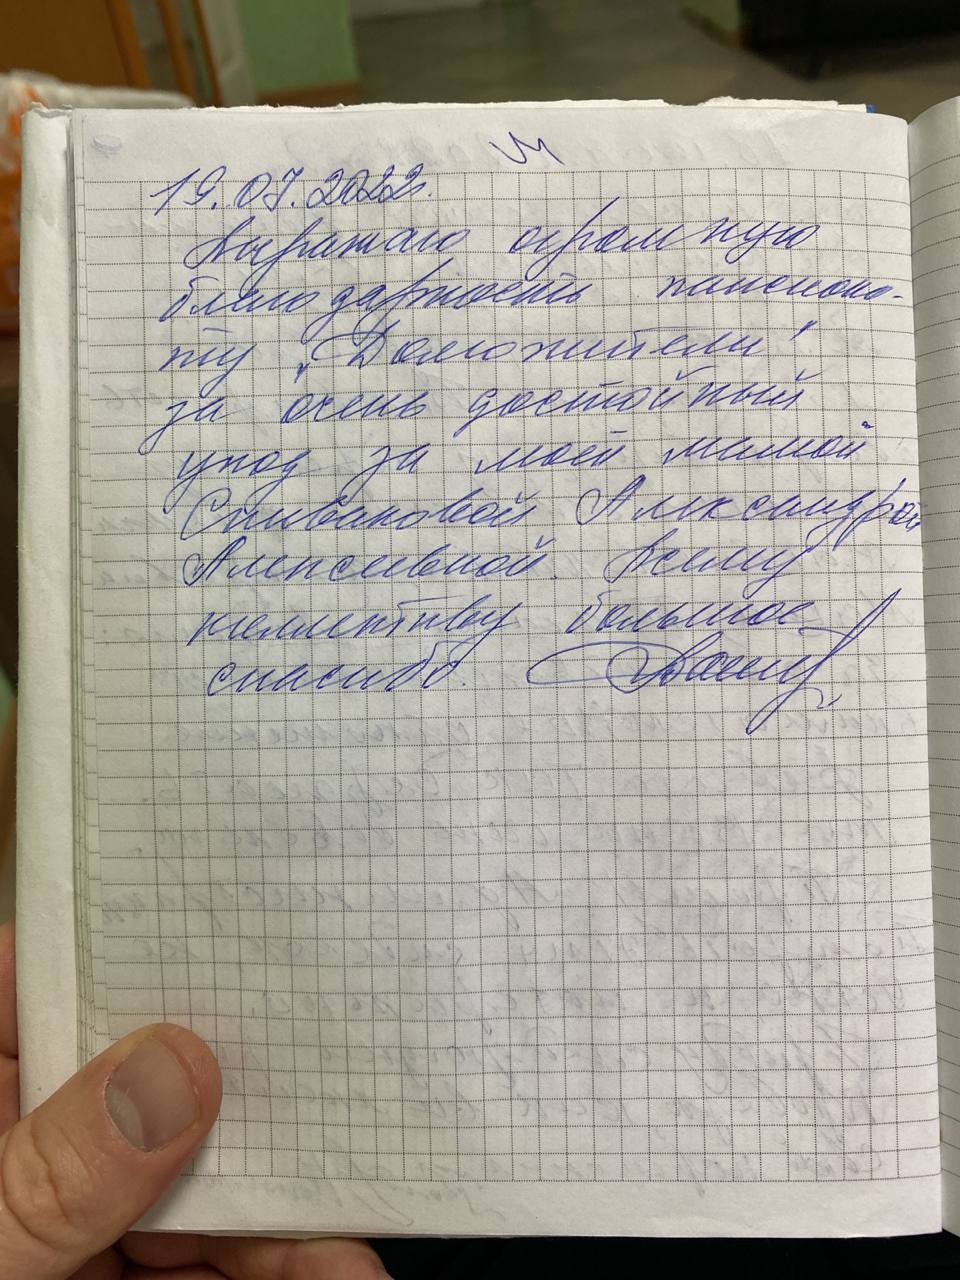 19.07.2022г.
Выражаю огромную
благодарность пансиона-
ту "Долгожители"
за очень достойный
уход за моей мамой
Спивановой Александрой
Алексеевной. Всему
коллективу большое
спасибо.